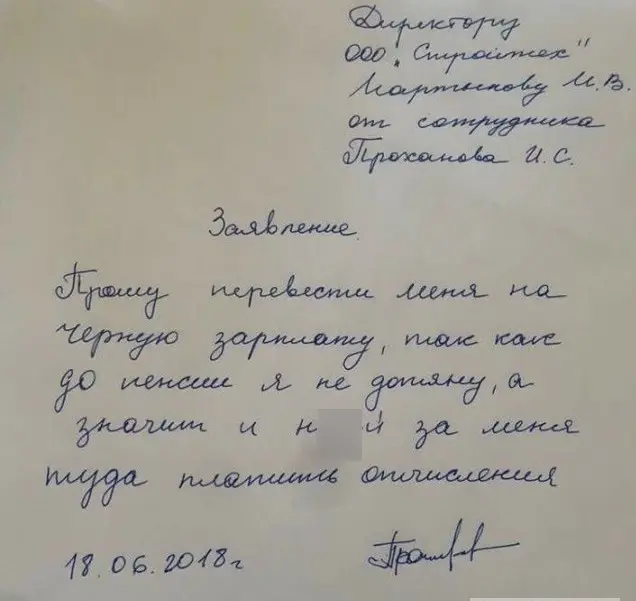 Директору
ООО "Строймех"
Мартынову И.В.
от сотрудника
Проханова И.С.
Заявление.
Прошу перевести меня на
черную зарплату, так как
до пенсии я не дотяну, а
значит и н й за меня
туда платить отчисления
18.06.2018г